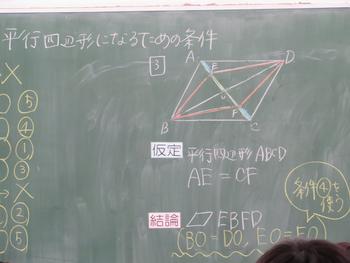 平行四辺形になるための条件
×
⑤
④
①
③
×
②
⑤
3
A
D
E
O
F
B
C
仮定 平行四辺形 ABCD
AE = CF
結論 ▱ EBFD
(BO = DO, EO = FO)
条件④を
使う